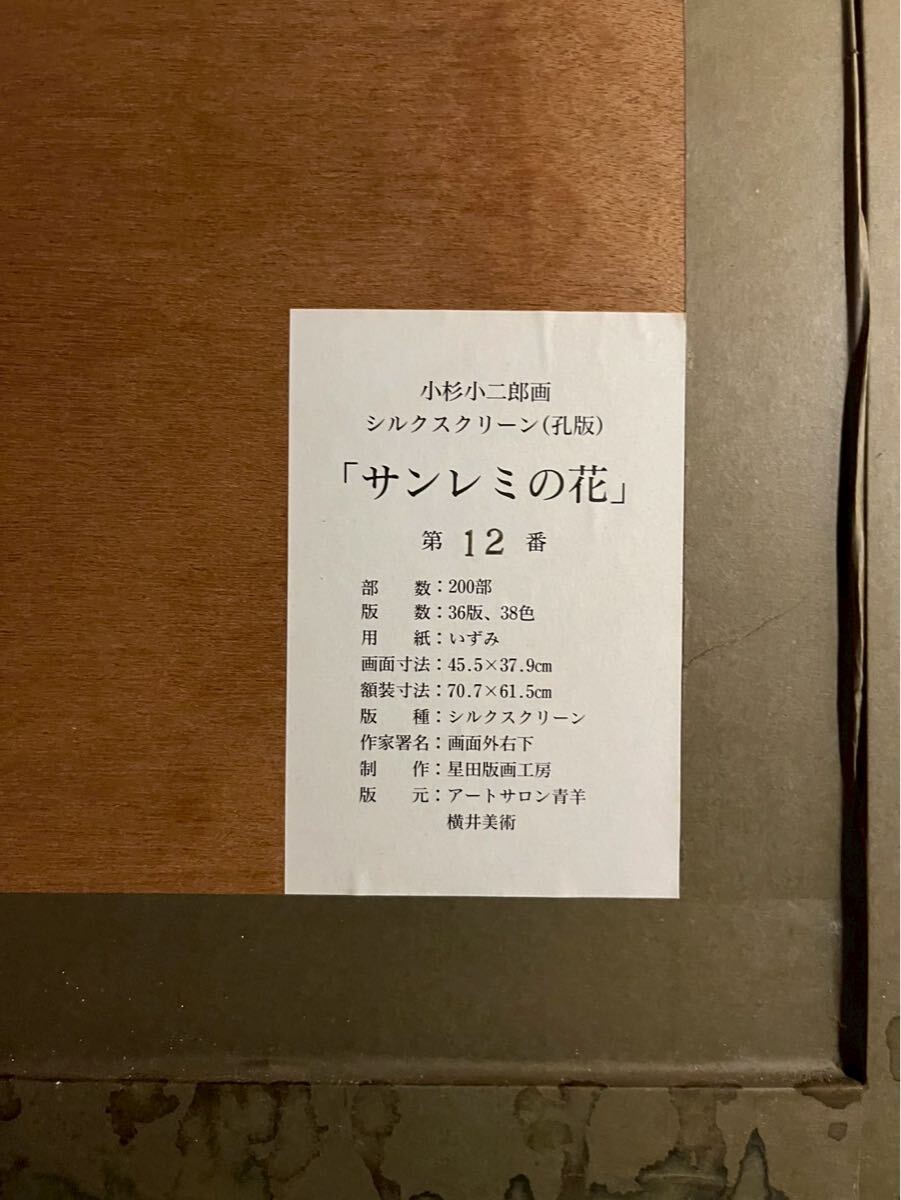 小杉小二郎画
シルクスクリーン(孔版)
「サンレミの花」
第 12 番
部　数：200部
版　数：36版、38色
用　紙：いずみ
画面寸法：45.5×37.9cm
額装寸法：70.7×61.5cm
版　種：シルクスクリーン
作家署名：画面外右下
制　作：星田版画工房
版　元：アートサロン青羊
横井美術